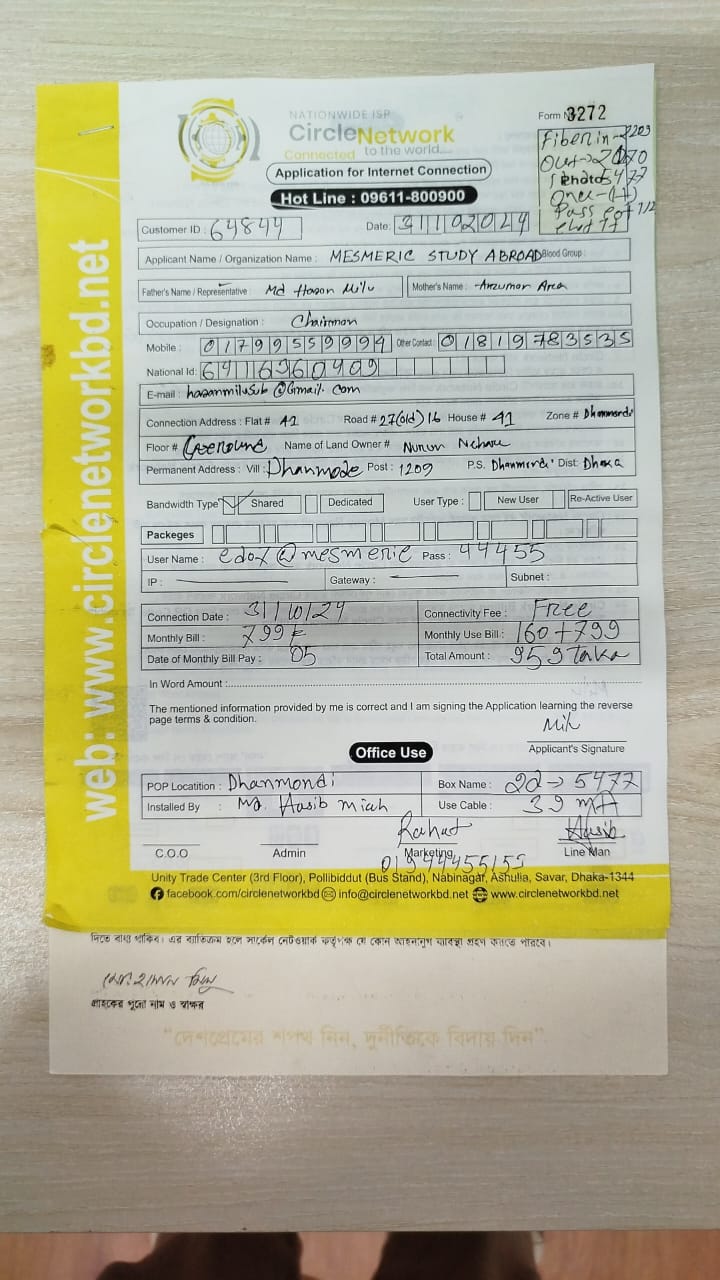 NATIONWIDE ISP
CircleNetwork
Connected to the world....
Application for Internet Connection
Hot Line : 09611-800900
Form 3272
Fiber in
Out
Customer ID : 64844
Date: 31102024
Applicant Name / Organization Name : MESMERIC STUDY ABROAD Blood Group :
Father's Name / Representative : Md Hasan Milu Mother's Name :
Occupation / Designation : Chairman
Mobile : 01799559994 Other Contact : 01819783535
National Id: 64116360409
E-mail : hasanmilusub@Gmail.com
Connection Address : Flat # 42 Road # 27(old) 16 House # 41 Zone # Dhanmondi
Floor # Name of Land Owner #
Permanent Address : Vill : Dhanmode Post : 1209 P.S. Dhanmondi Dist: Dhaka
Bandwidth Type Shared Dedicated User Type : New User Re-Active User
Packeges
User Name : edox@mesmeric Pass : 44455
IP : Gateway : Subnet :
Connection Date : 31/10/24 Connectivity Fee : Free
Monthly Bill : 799 Monthly Use Bill : 160+799
Date of Monthly Bill Pay : 05 Total Amount : 959 Taka
In Word Amount :
The mentioned information provided by me is correct and I am signing the Application learning the reverse
page terms & condition.
Milu
Applicant's Signature
Office Use
POP Locatition : Dhanmondi Box Name : 2d→5477
Installed By : Md. Hasib Miah Use Cable : 39
Rahat Hasib
C.O.O Admin Marketing Line Man
Unity Trade Center (3rd Floor), Pollibiddut (Bus Stand), Nabinagar, Ashulia, Savar, Dhaka-1344
facebook.com/circlenetworkbd info@circlenetworkbd.net www.circlenetworkbd.net
web: www.circlenetworkbd.net
দিতে বাধ্য থাকিব। এর ব্যতিক্রম হলে সার্কেল নেটওয়ার্ক কর্তৃপক্ষ যে কোন আইনানুগ ব্যবস্থা গ্রহণ করতে পারবে।
মোঃ হাসান মিলু
গ্রাহকের পুরো নাম ও স্বাক্ষর
"দেশপ্রেমের শপথ নিন, দুর্নীতিকে বিদায় দিন"